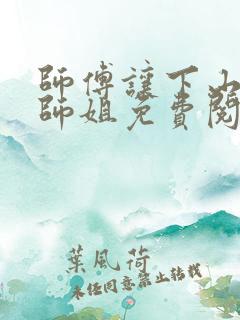 師傅讓下山
師姐免費閱
葉風荷
未經同意禁止轉載